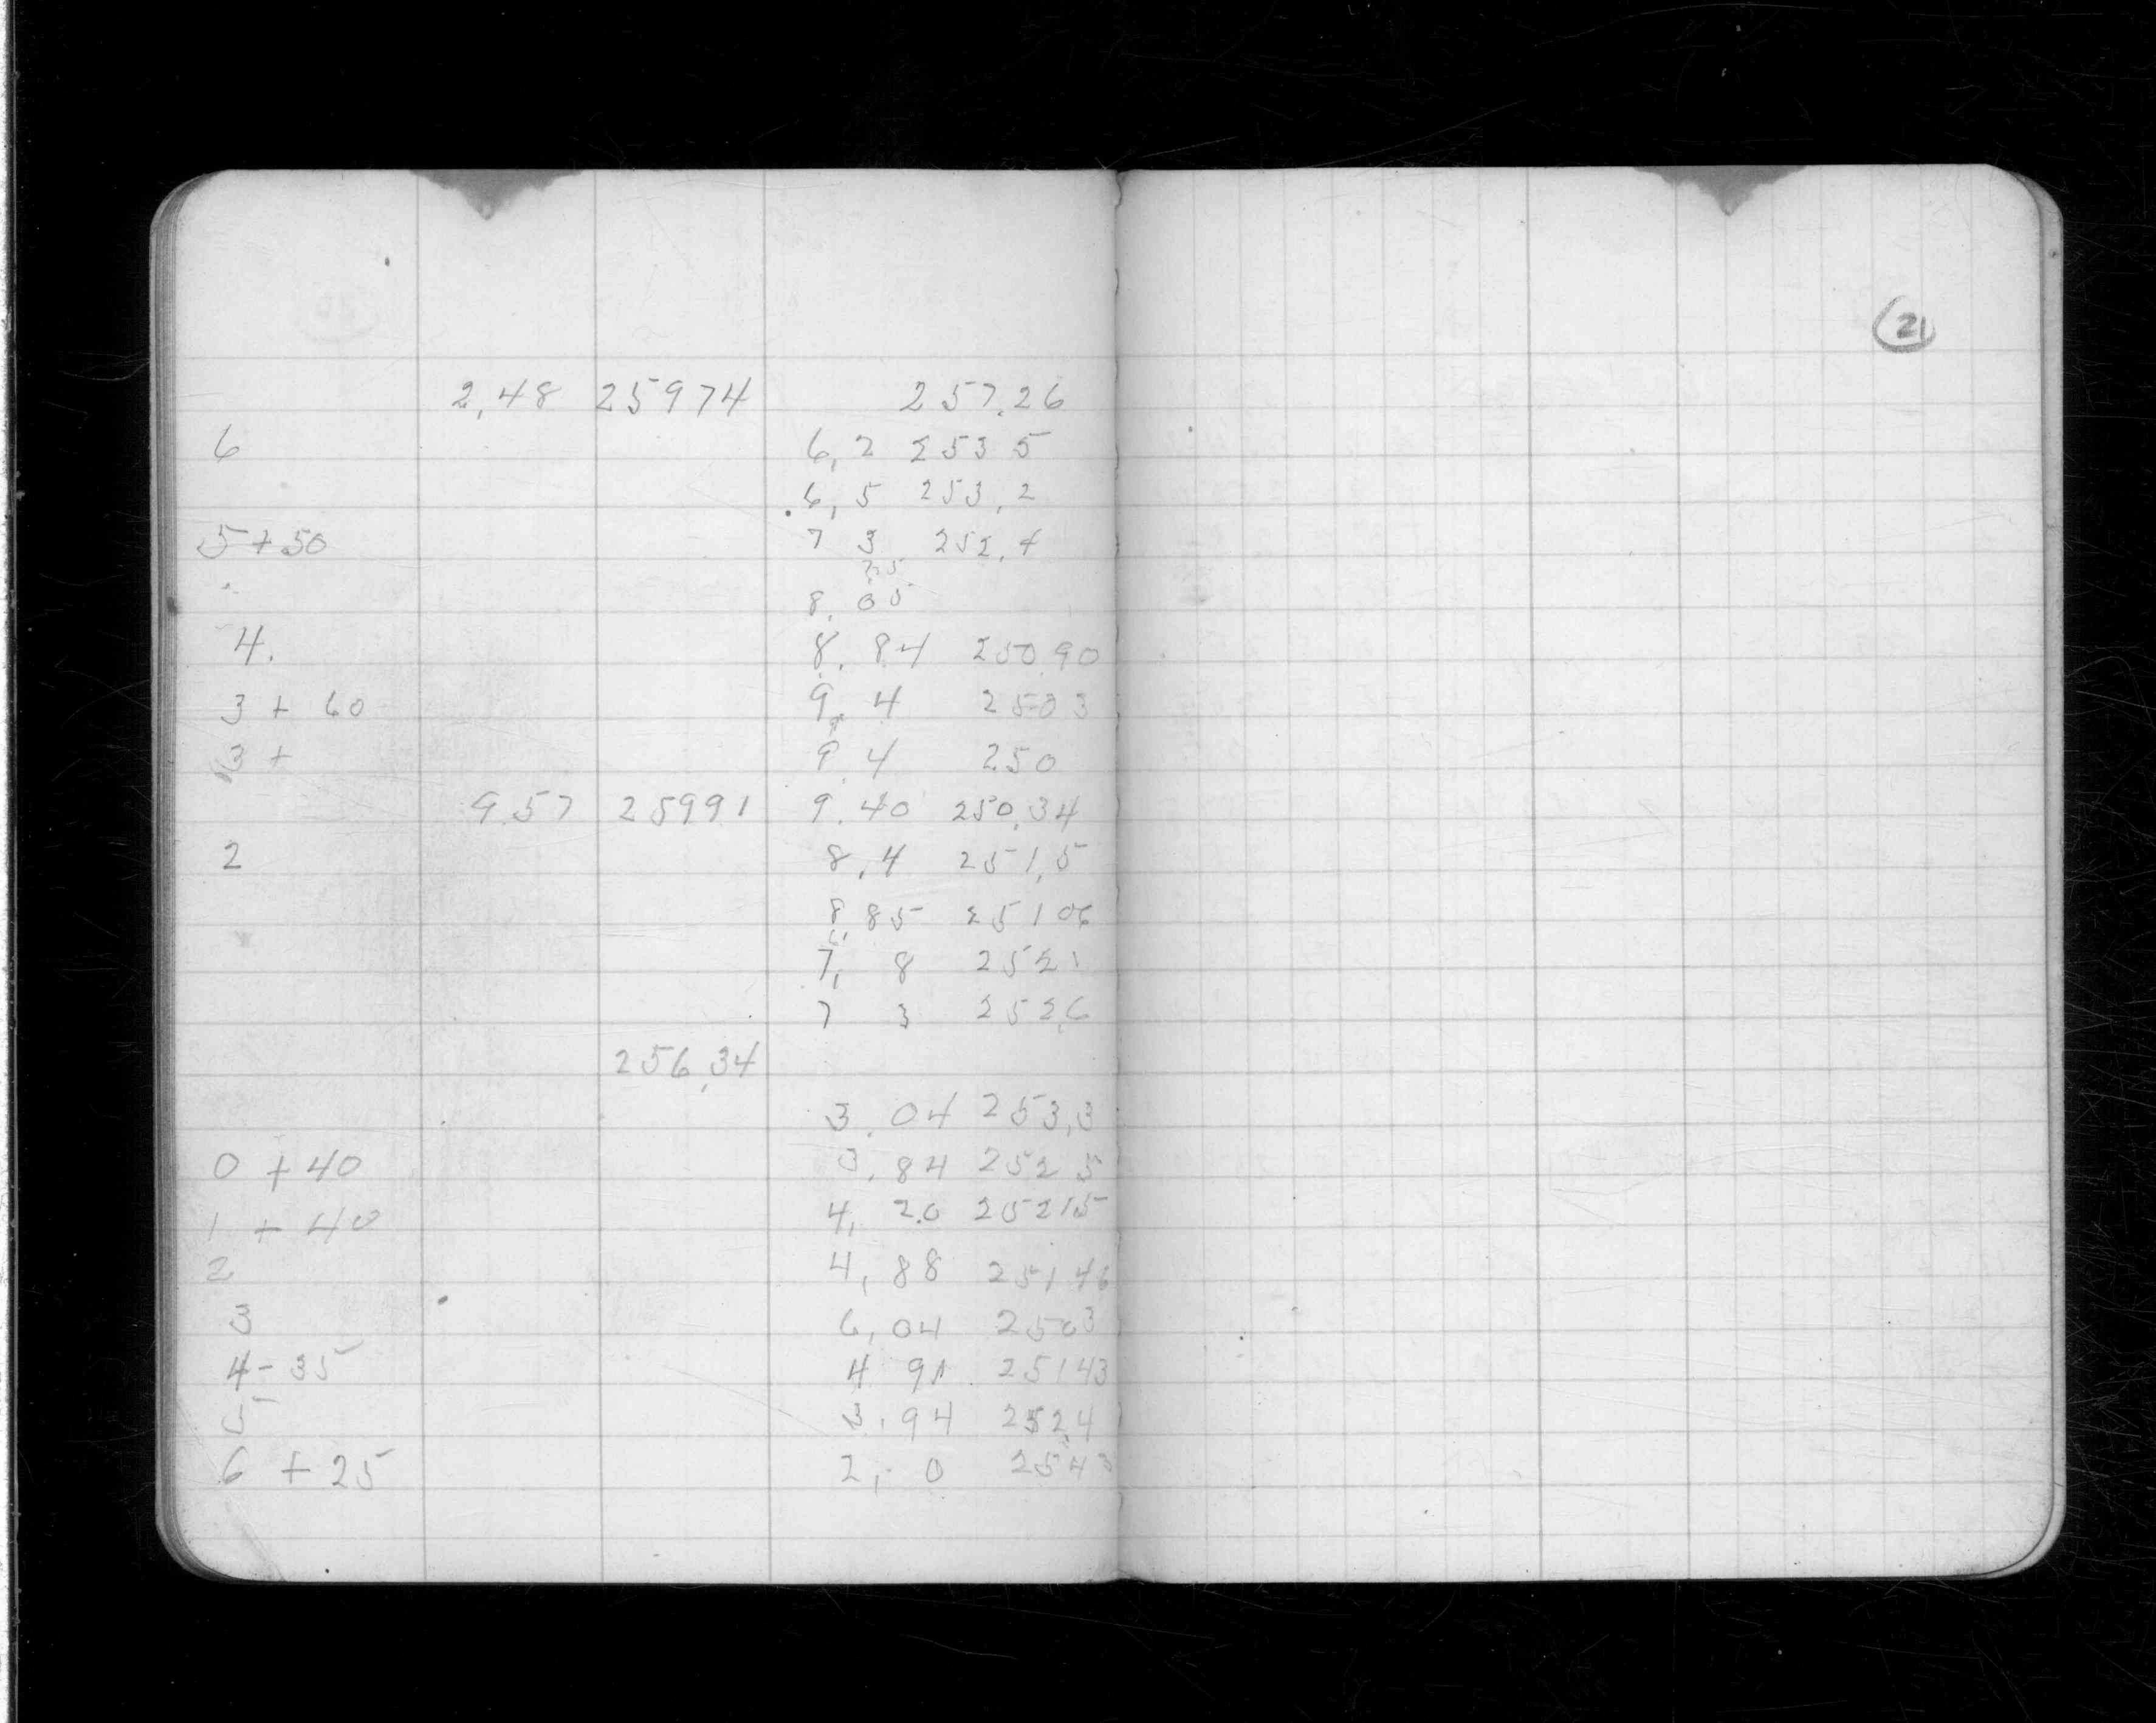 21
2,48 25974 257.26
6 6,2 253 5
6,5 253,2
5+50 7 3. 252.4
8.05
4. 8.84 250.90
3 + 60 9. 4 2503
3 + 9.4 250
9.57 25991 9.40 250.34
2 8,4 251,5
8.85 25106
7, 8 2521
7 3 252.6
256.34
3.04 253,3
0 + 40 3.84 252 5
1 + 40 4, 20 25215
2 4,88 25146
3 6,04 2503
4-35 4 91 25143
5 3.94 252.4
6 + 25 2, 0 2543